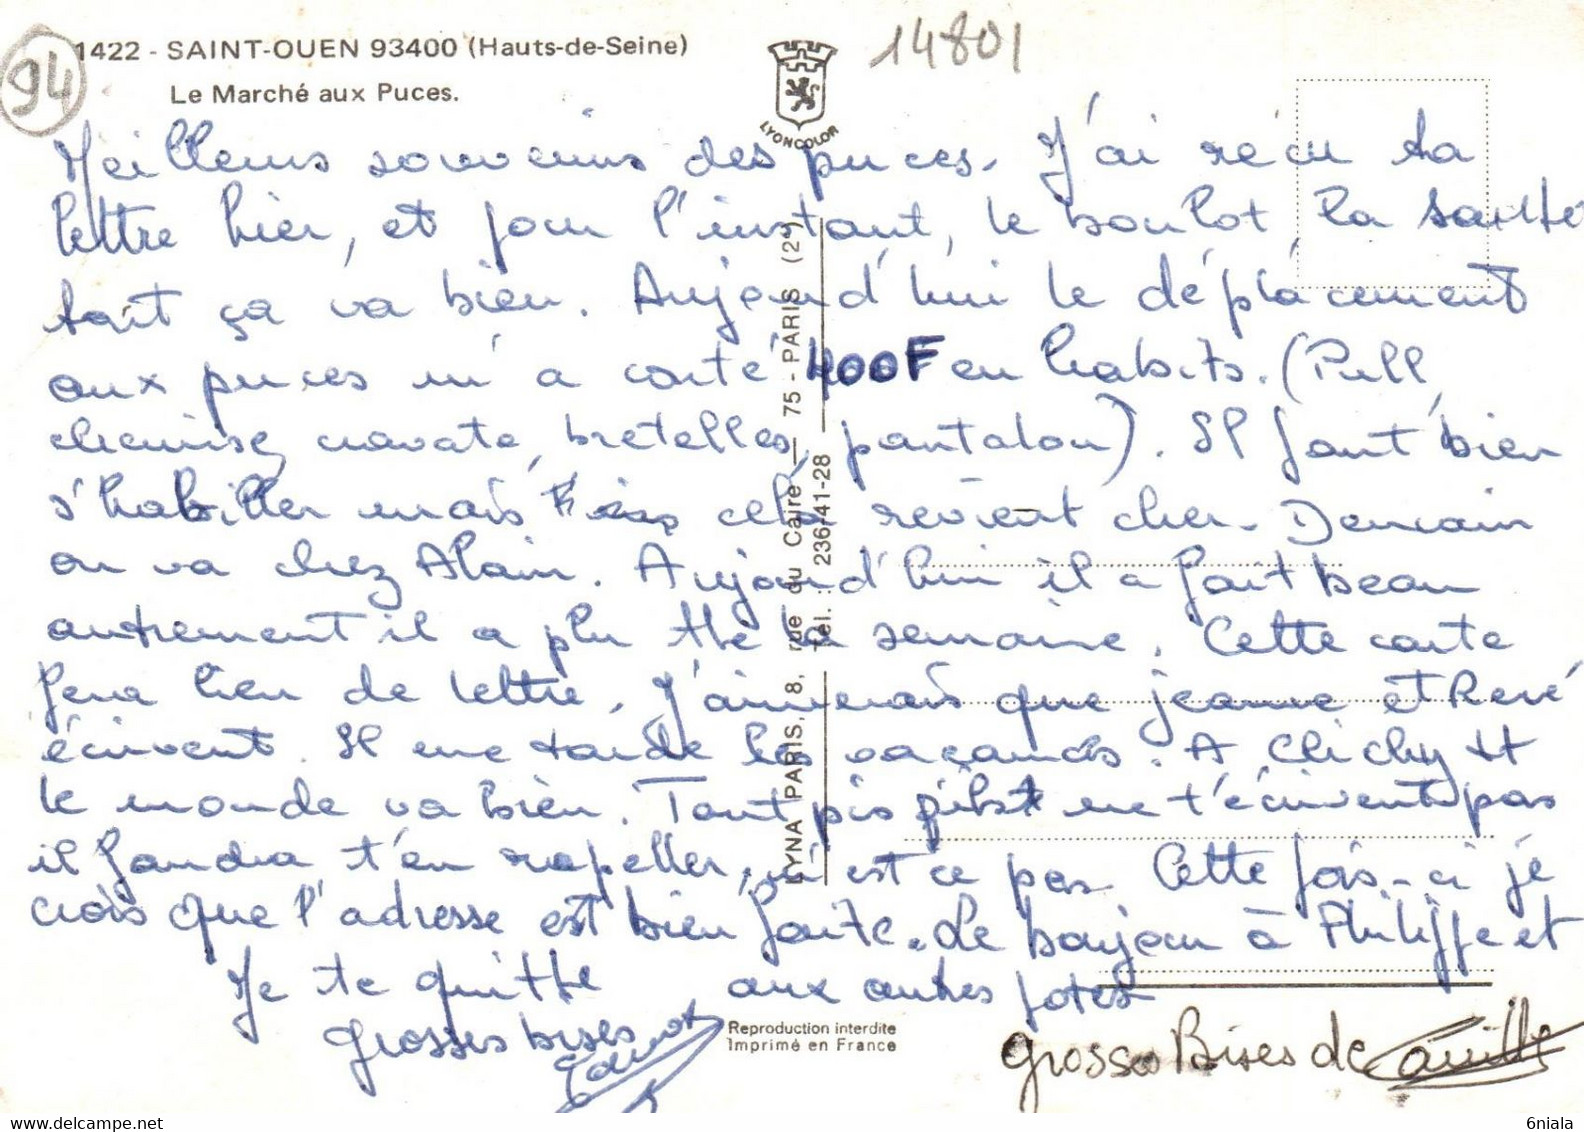 14801
94
1422 - SAINT-OUEN 93400 (Hauts-de-Seine)
Le Marché aux Puces.
LYONCOLOR
Meilleurs souvenirs des puces. J'ai récu ta
lettre hier, et pour l'instant, le boulot, la santée
tout ça va bien. Aujourd'hui le déplacement
aux puces m'a couté 400F en habits. (Pull,
chemise, cravate, bretelles, pantalon). Il faut bien
s'habiller mais cela revient cher. Demain
on va chez Alain. Aujourd'hui il a fait beau
autrement il a plu tte la semaine. Cette carte
fera lieu de lettre. J'aimerais que jeanne et René
écrivent. Il me tarde les vacances. A Clichy tt
le monde va bien. Tant pis qu'ils ne t'écrivent pas
il faudra t'en rapeller, n'est ce pas. Cette fois-ci je
crois que l'adresse est bien faite. Le bonjour à Philippe et
aux autres potes
Je te quitte
grosses bises
grosses Bises de Camille
LYNA PARIS, 8, rue du Caire — 75 - PARIS (2e)
Tél. : 236-41-28
Reproduction interdite
Imprimé en France
www.delcampe.net
6niala